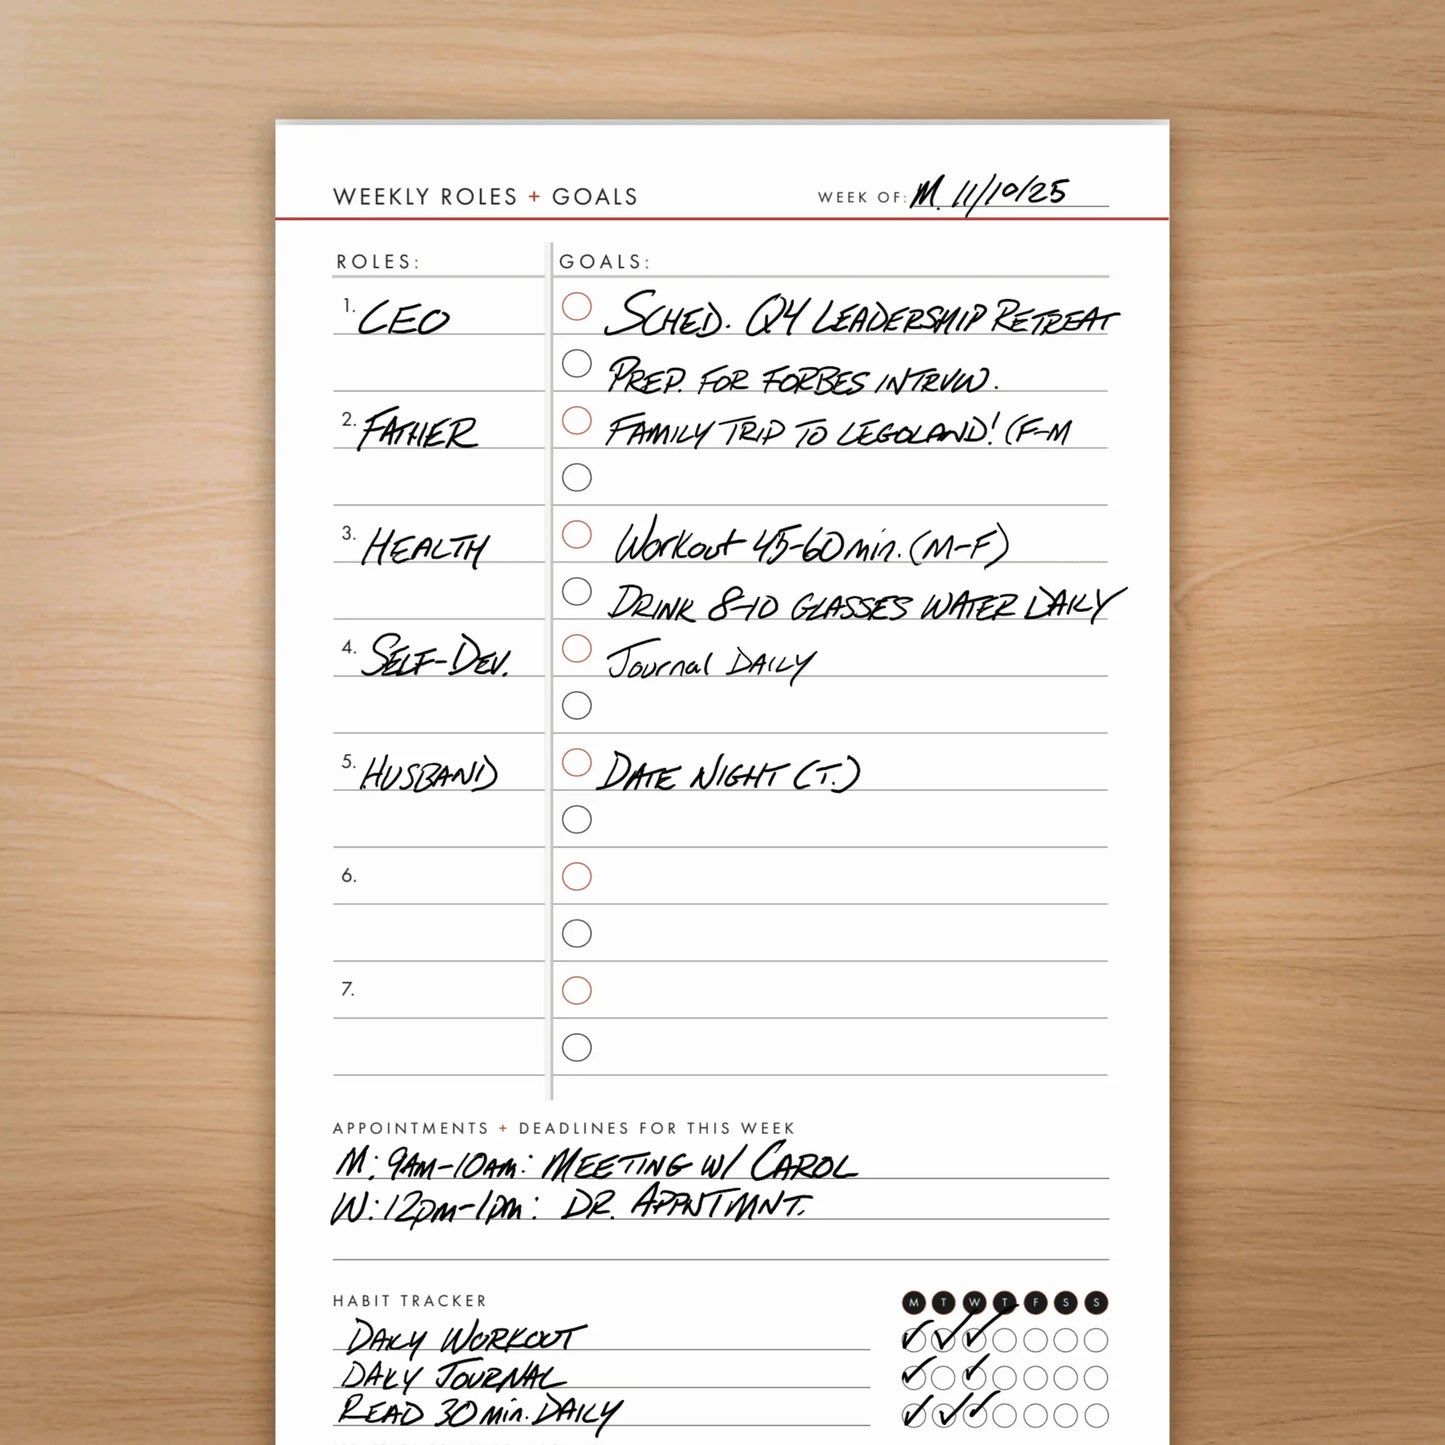 WEEKLY ROLES + GOALS
WEEK OF: M. 11/10/25
ROLES: GOALS:
1. CEO SCHED. Q4 LEADERSHIP RETREAT
PREP. FOR FORBES INTRVW.
2. FATHER FAMILY TRIP TO LEGOLAND! (F-M
3. HEALTH Workout 45-60 min. (M-F)
DRINK 8-10 GLASSES WATER DAILY
4. SELF-DEV. Journal DAILY
5. HUSBAND DATE NIGHT (T.)
6.
7.
APPOINTMENTS + DEADLINES FOR THIS WEEK
M: 9AM-10AM: MEETING W/ CAROL
W: 12pm-1pm: DR. APPNTMNT.
HABIT TRACKER M T W T F S S
DAILY WORKOUT
DAILY JOURNAL
READ 30 min. DAILY